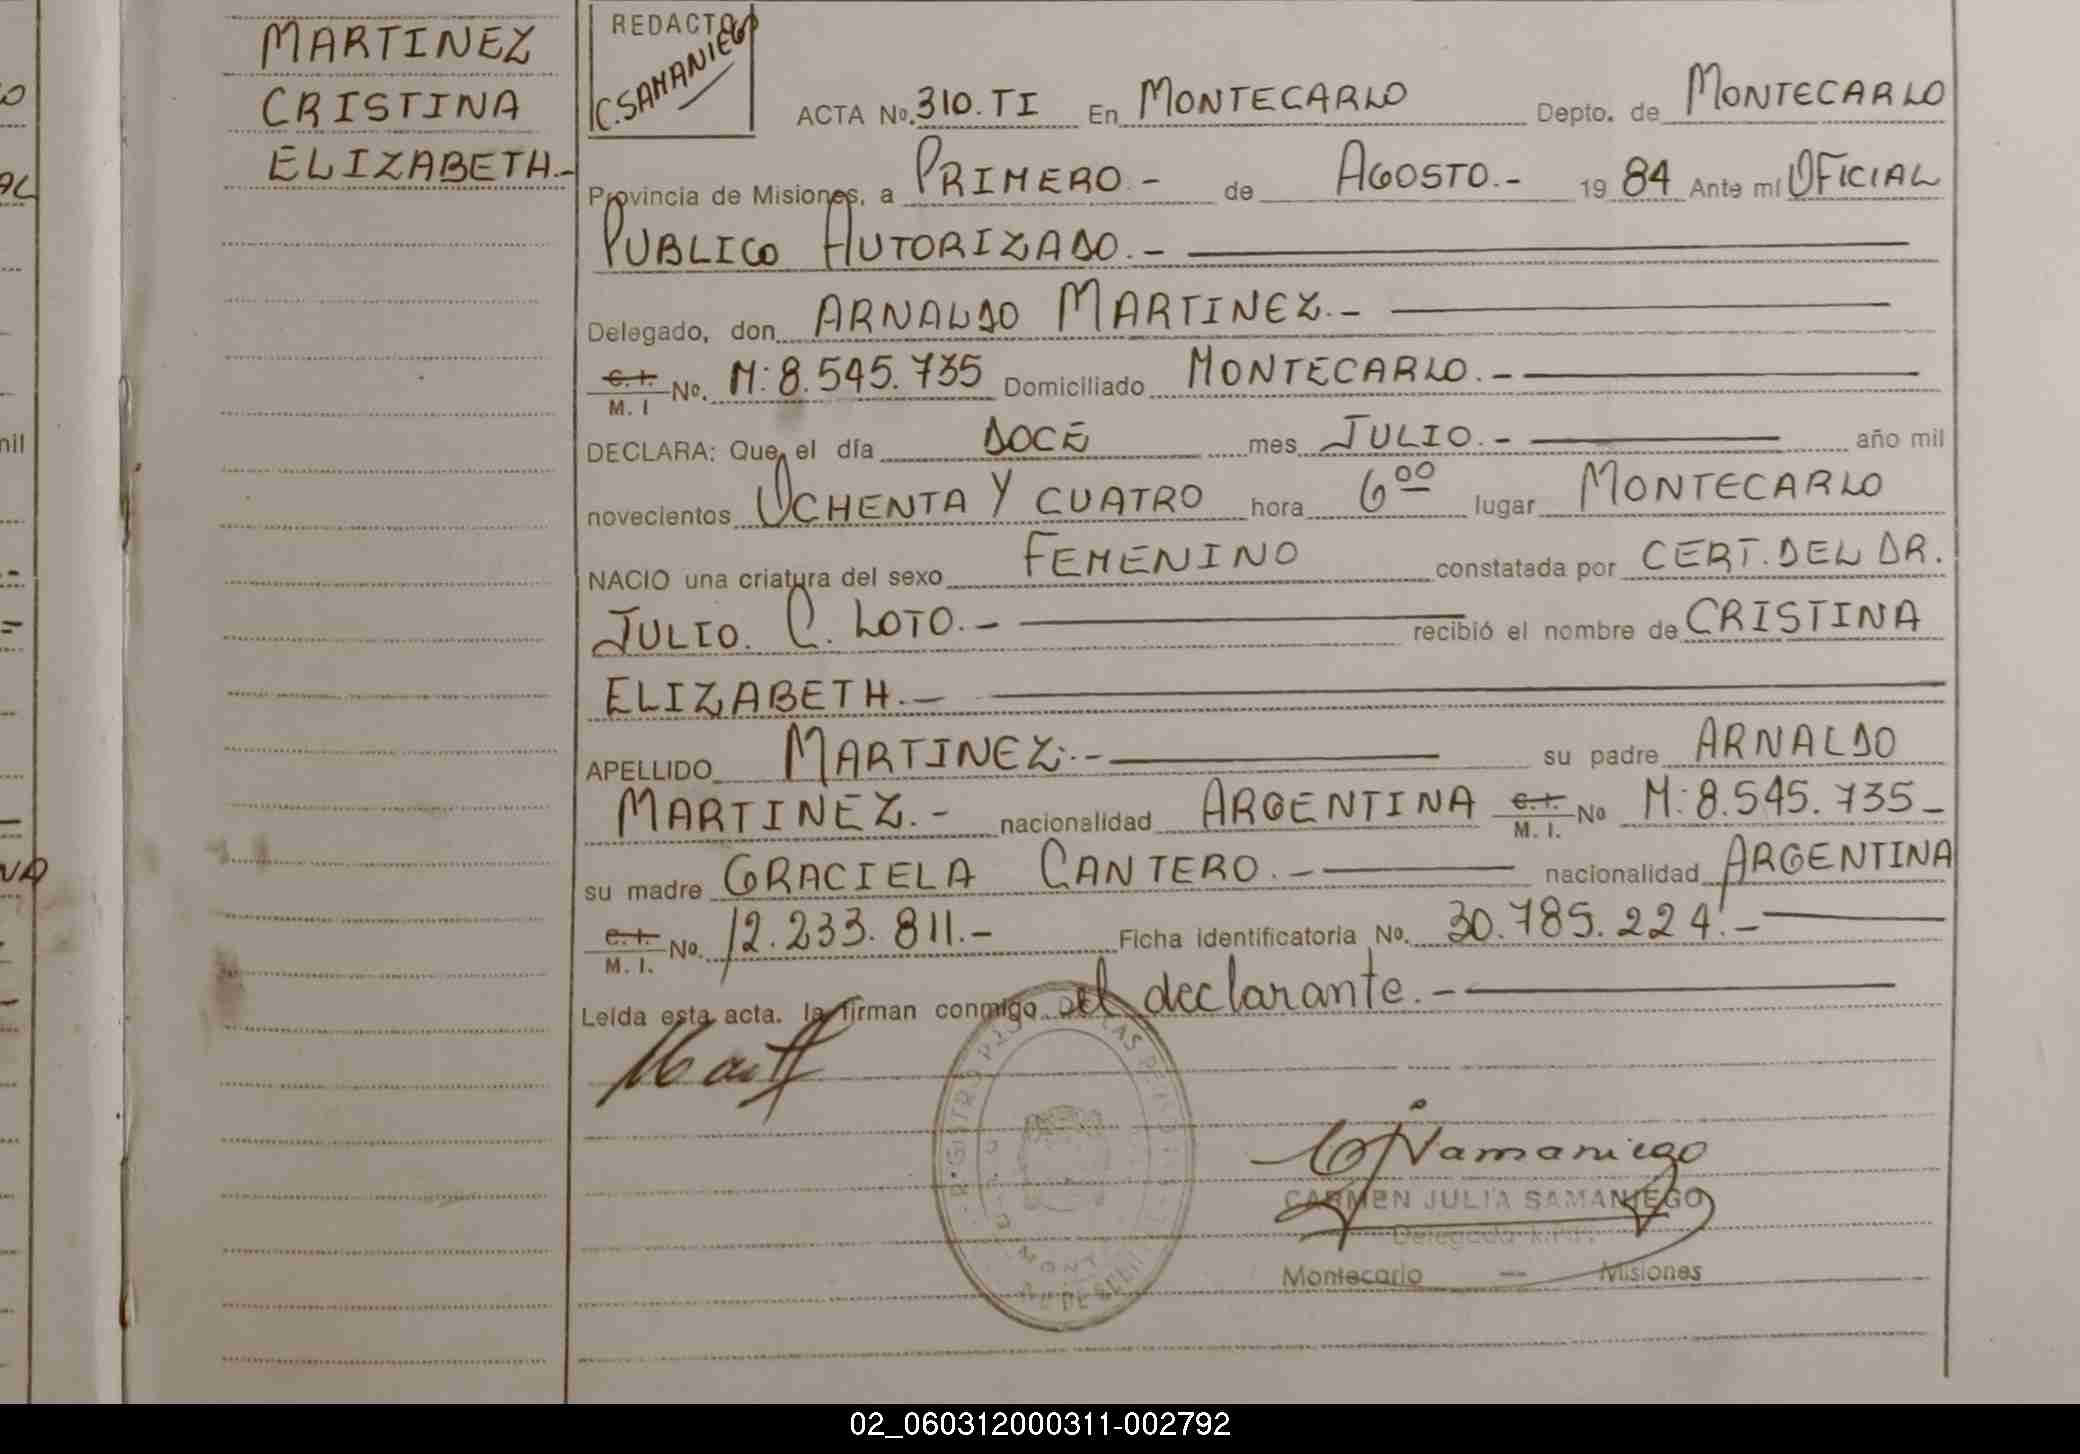 MARTINEZ
CRISTINA
ELIZABETH.-
REDACTO
C. SAMANIEGO
ACTA No. 310. TI En MONTECARLO Depto. de MONTECARLO
Provincia de Misiones, a PRIMERO.- de AGOSTO.- 19 84 Ante mí OFICIAL
PUBLICO AUTORIZADO.-
Delegado, don ARNALDO MARTINEZ.-
C. I. M. I No. M: 8.545.735 Domiciliado MONTECARLO.-
DECLARA: Que, el día DOCE mes JULIO.- año mil
novecientos OCHENTA Y CUATRO hora 6 00 lugar MONTECARLO
NACIO una criatura del sexo FEMENINO constatada por CERT. DEL DR.
JULIO. C. LOTO.- recibió el nombre de CRISTINA
ELIZABETH.-
APELLIDO MARTINEZ.- su padre ARNALDO
MARTINEZ.- nacionalidad ARGENTINA C. I. M. I. No M: 8.545.735-
su madre GRACIELA CANTERO.- nacionalidad ARGENTINA
C. I. M. I. No. 12.233.811.- Ficha identificatoria No. 30.785.224.-
Leída esta acta. la firman conmigo el declarante.-
CJSamaniego
CARMEN JULIA SAMANIEGO
Delegada
Montecarlo — Misiones
02_060312000311-002792